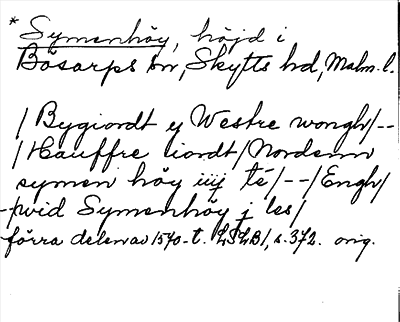 * Symenhöy, höjd i
Bösarps sn, Skytts hd, Malm. l.
/ Bygiordt y Westre wongh/--
/ Hauffre iordt / Nordenn
symen höy iiij té/--/Engh/
-/wid Symenhöy j les/
förra delen av 1570-t. LSLB1, s. 372. orig.